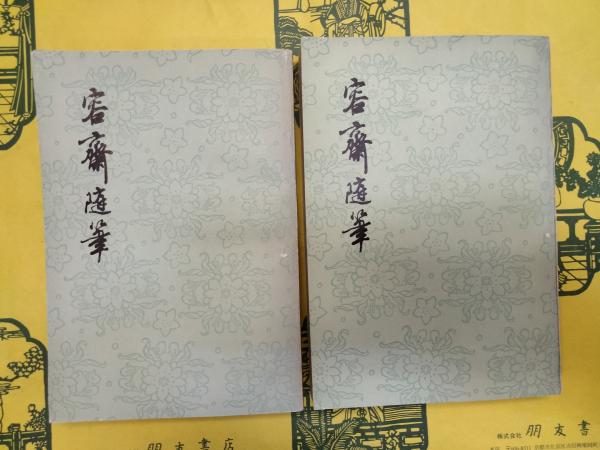 容齋隨筆
容齋隨筆
朋友書店
株式会社 朋友書